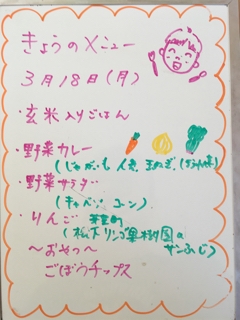 きょうのメニュー
3月18日(月)
・玄米入りごはん
・野菜カレー
(じゃがいも 人参 玉ねぎ
・野菜サラダ
(キャベツ コーン)
・りんご
(松下リンゴ果樹園の
サンふじ)
〜おやつ〜
ごぼうチップス